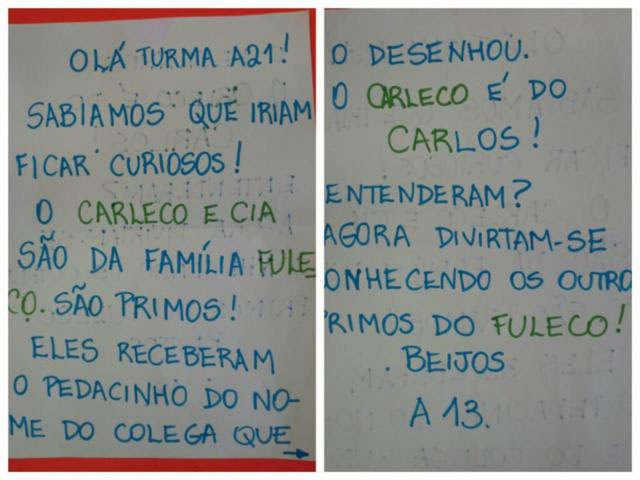 OLÁ TURMA A21!
SABIAMOS QUE IRIAM
FICAR CURIOSOS!
O CARLECO E CIA
SÃO DA FAMÍLIA FULE
CO. SÃO PRIMOS!
ELES RECEBERAM
O PEDACINHO DO NO-
ME DO COLEGA QUE
O DESENHOU.
O CARLECO É DO
CARLOS!
ENTENDERAM?
AGORA DIVIRTAM-SE
ONHECENDO OS OUTRO
RIMOS DO FULECO!
BEIJOS
A 13.